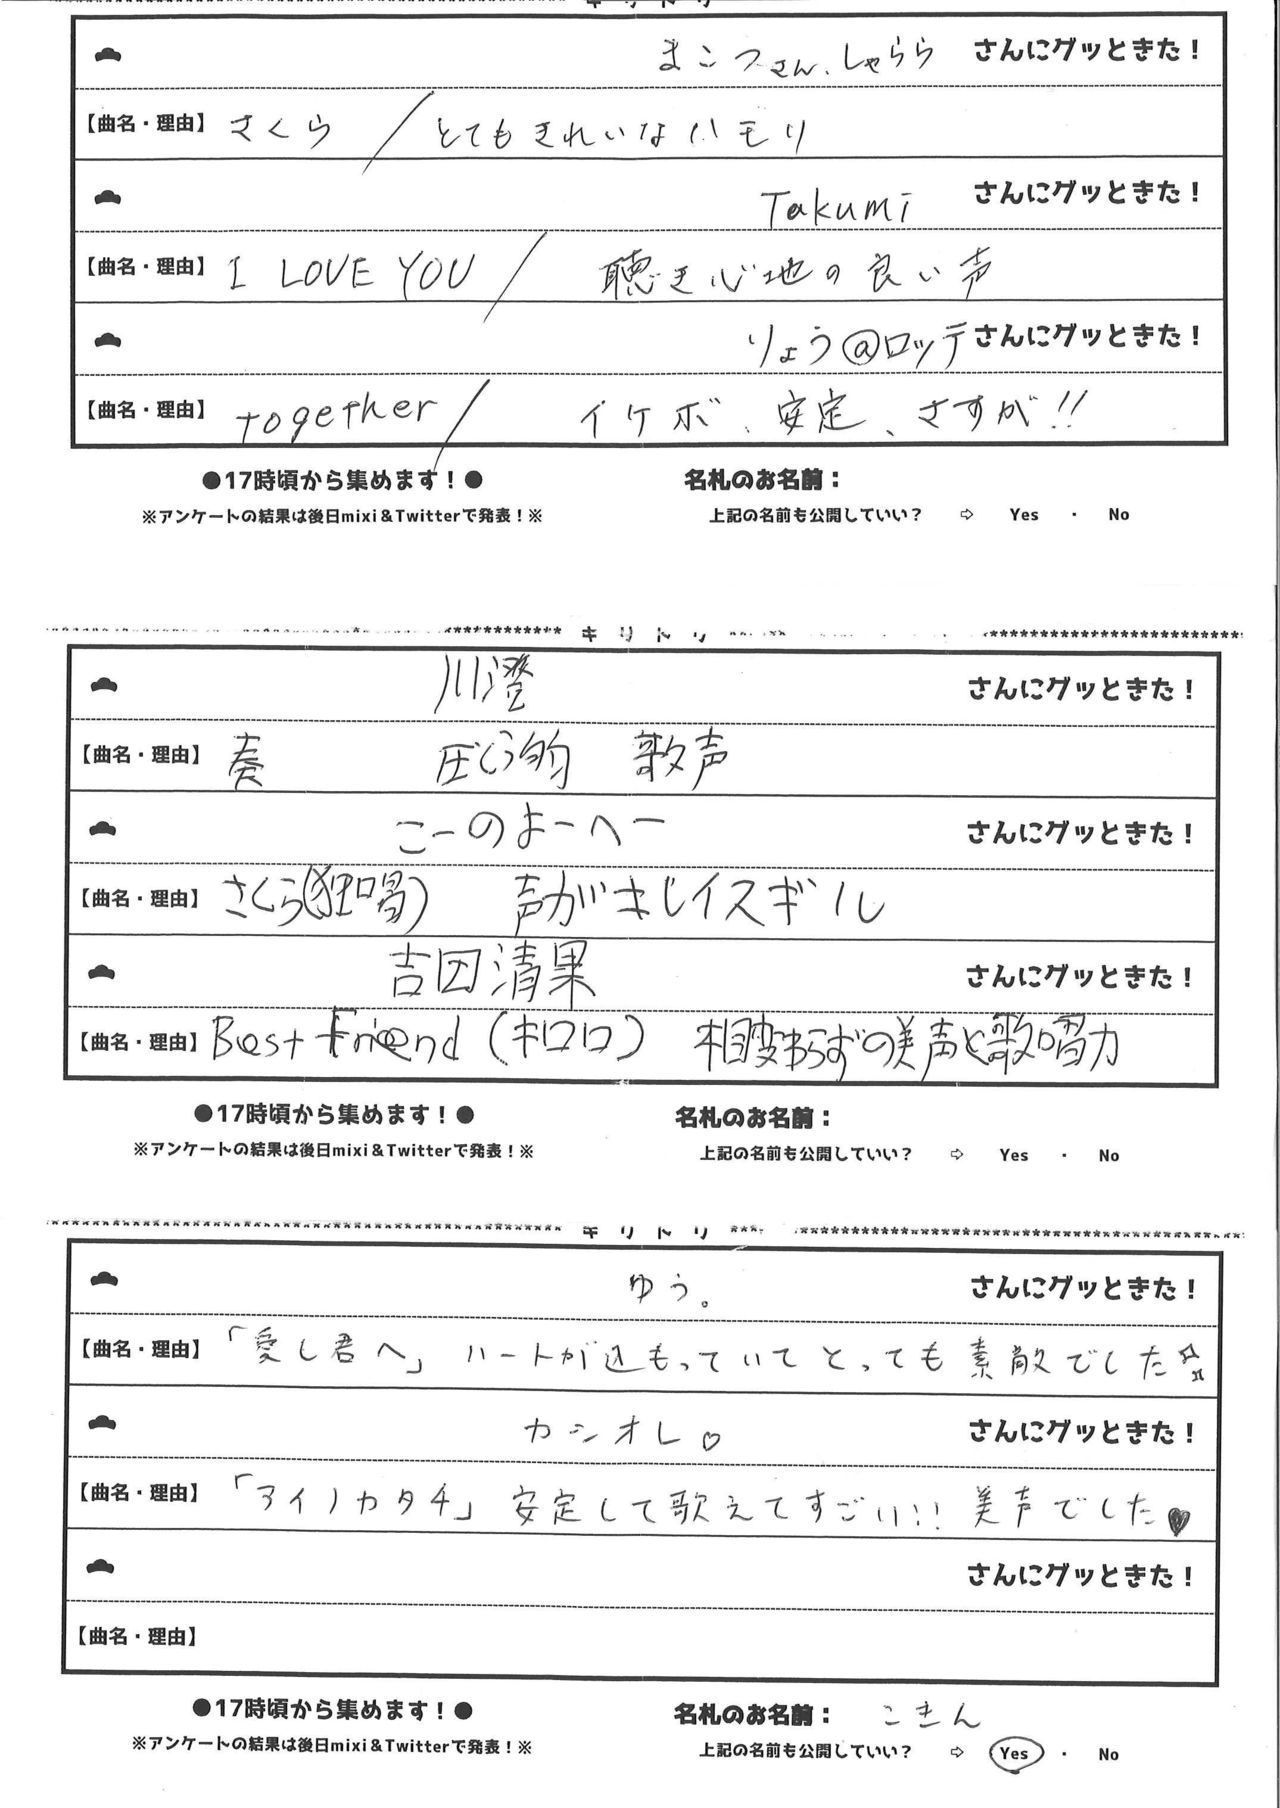 キリトリ
まこつさん、しゃらら さんにグッときた！
【曲名・理由】 さくら / とてもきれいなハモリ
Takumi さんにグッときた！
【曲名・理由】 I LOVE YOU / 聴き心地の良い声
りょう@ロッテ さんにグッときた！
【曲名・理由】 together / イケボ、安定、さすが!!
●17時頃から集めます！● 名札のお名前：
※アンケートの結果は後日mixi＆Twitterで発表！※ 上記の名前も公開していい？ ⇨ Yes ・ No
キリトリ
川澄 さんにグッときた！
【曲名・理由】 奏 圧とう的 歌声
こーのよーへー さんにグッときた！
【曲名・理由】 さくら(独唱) 声がキレイスギル
吉田清果 さんにグッときた！
【曲名・理由】 Best Friend (キロロ) 相変わらずの美声と歌唱力
●17時頃から集めます！● 名札のお名前：
※アンケートの結果は後日mixi＆Twitterで発表！※ 上記の名前も公開していい？ ⇨ Yes ・ No
キリトリ
ゆう。 さんにグッときた！
【曲名・理由】 「愛し君へ」 ハートが込もっていてとっても素敵でした
カシオレ♡ さんにグッときた！
【曲名・理由】 「アイノカタチ」 安定して歌えてすごい!! 美声でした♥
さんにグッときた！
【曲名・理由】
●17時頃から集めます！● 名札のお名前： こきん
※アンケートの結果は後日mixi＆Twitterで発表！※ 上記の名前も公開していい？ ⇨ Yes ・ No